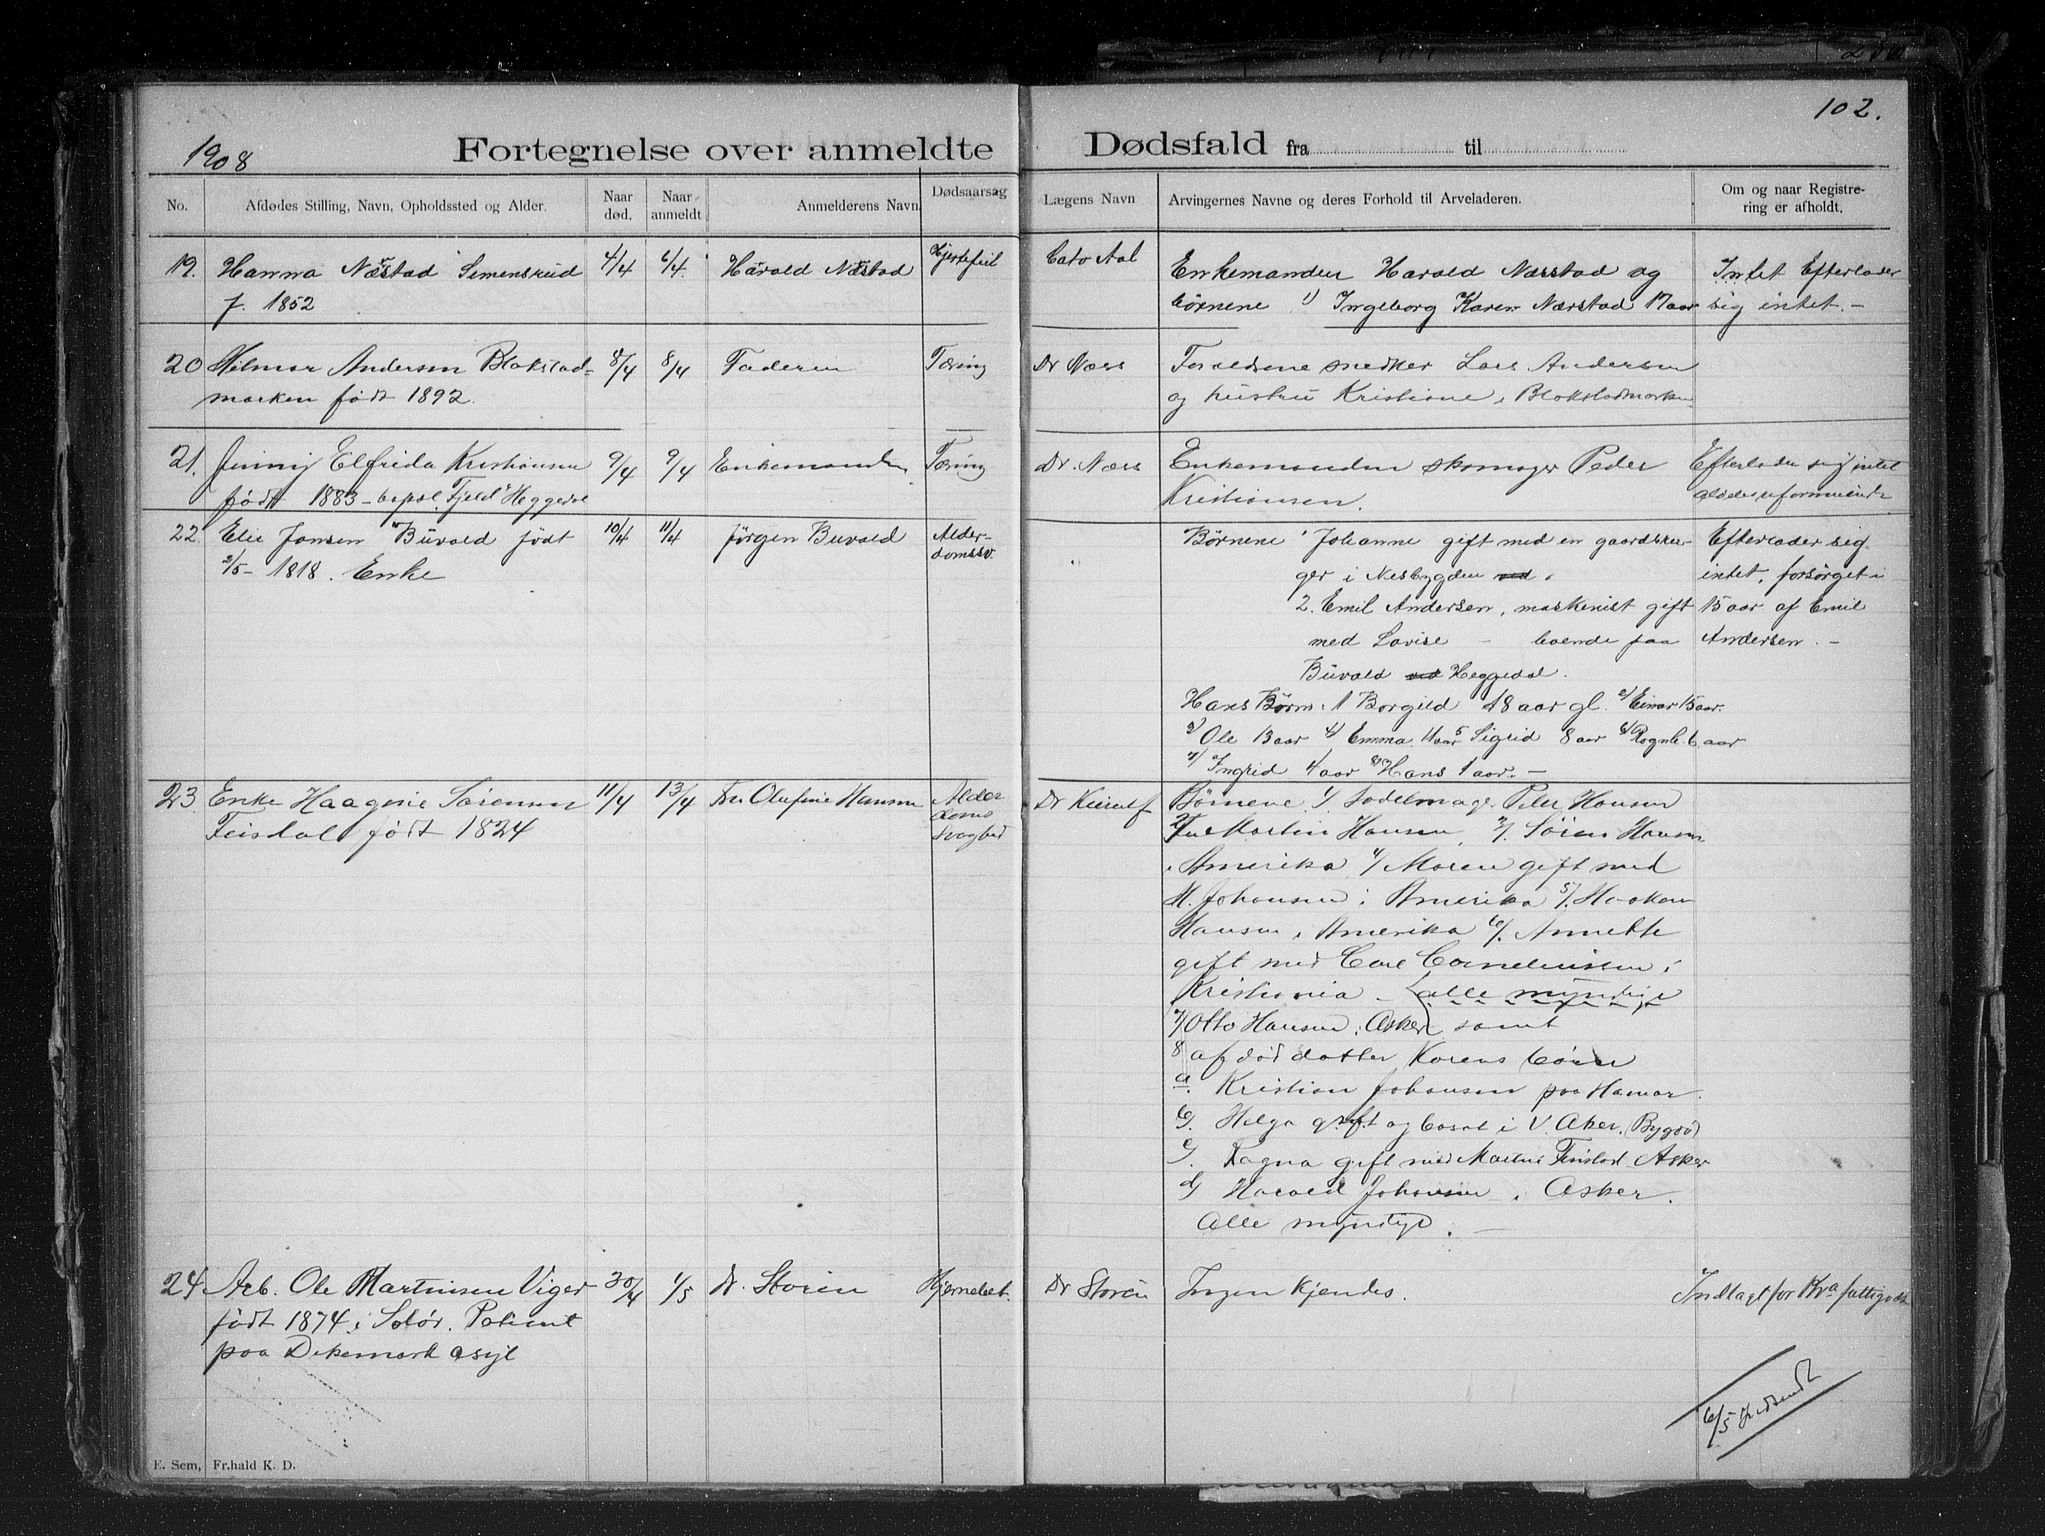 102.
1908
Fortegnelse over anmeldte Dødsfald fra til
No.
Afdødes Stilling, Navn, Opholdssted og Alder.
Naar død.
Naar anmeldt
Anmelderens Navn.
Dødsaarsag
Lægens Navn
Arvingernes Navne og deres Forhold til Arveladeren.
Om og naar Registre-
ring er afholdt.
19. Hanna Næstad Semensrud 4/4 6/4 Harald Næstad Hjertefeil Cato Aal
f. 1852
Enkemanden Harald Nærstad og
børnene 1) Ingeborg Karen Nærstad 17 aar
Intet Efterlader
sig intet. –
20 Hilmar Andersen Blakstad-
marken født 1892.
8/4 8/4 Faderen Tæring Dr Næss
Forældrene snedker Lars Andersen
og hustru Kristiane i Blakstadmarken
21. Jenny Elfrida Kristiansen
født 1883 – Fjeld Heggedal
9/4 9/4 Enkemanden Tæring Dr. Næss
Enkemanden skomager Peder
Kristiansen.
Efterlader sig intet
22. Elie Jansen Buvald født
2/5 – 1818. Enke
10/4 11/4 Jörgen Buvald Alder-
domssv.
Børnene 1 Johanne gift med en gaardbru-
ger i Nesbygden
2. Emil Andersen, maskinist gift
med Lovise – boende paa
Buvald Heggedal.
Hans Børn: 1 Borgild 18 aar gl. 2/ Einar 15 aar.
3/ Ole 13 aar 4/ Emma 11 aar 5 Sigrid 8 aar 6/ Ragnh. 6 aar
7/ Ingrid 4 aar 8/ Hans 1 aar. –
Efterlader sig
intet, forsørget i
15 aar af Emil
Andersen. –
23. Enke Haagine Sørensen
Feistal født 1824
11/4 13/4 Fru Olufine Hansen Alder
doms
svaghed
Børnene 1/ Sadelmager Peter Hansen
2/ Martin Hansen, 3/. Søren Hansen
i Amerika 4/ Maren gift med
H. Johansen i Amerika 5/. Haakon
Hansen i Amerika 6/. Annette
gift med Carl Corneliussen i
Kristiania – (alle myndige
7/ Otto Hansen i Asker) samt
8/ afdød datter Karens børn
a. Kristian Johansen paa Hamar.
b/. Helga gift og bosat i V. Aker. (Bygdø)
c/. Ragna gift med Martin Feistad Asker
d/ Harald Johansen i Asker.
Alle myndige. –
24 Arb. Ole Martinsen Viger
født 1874 i Solør. Patient
paa Dikemark asyl
30/4 1/5 Dr. Storèn Hjernebet. Dr Storèn
Ingen kjendes.
Indlagt for Kra fattigv
6/5 Indsendt
E. Sem, Fr.hald K. D.